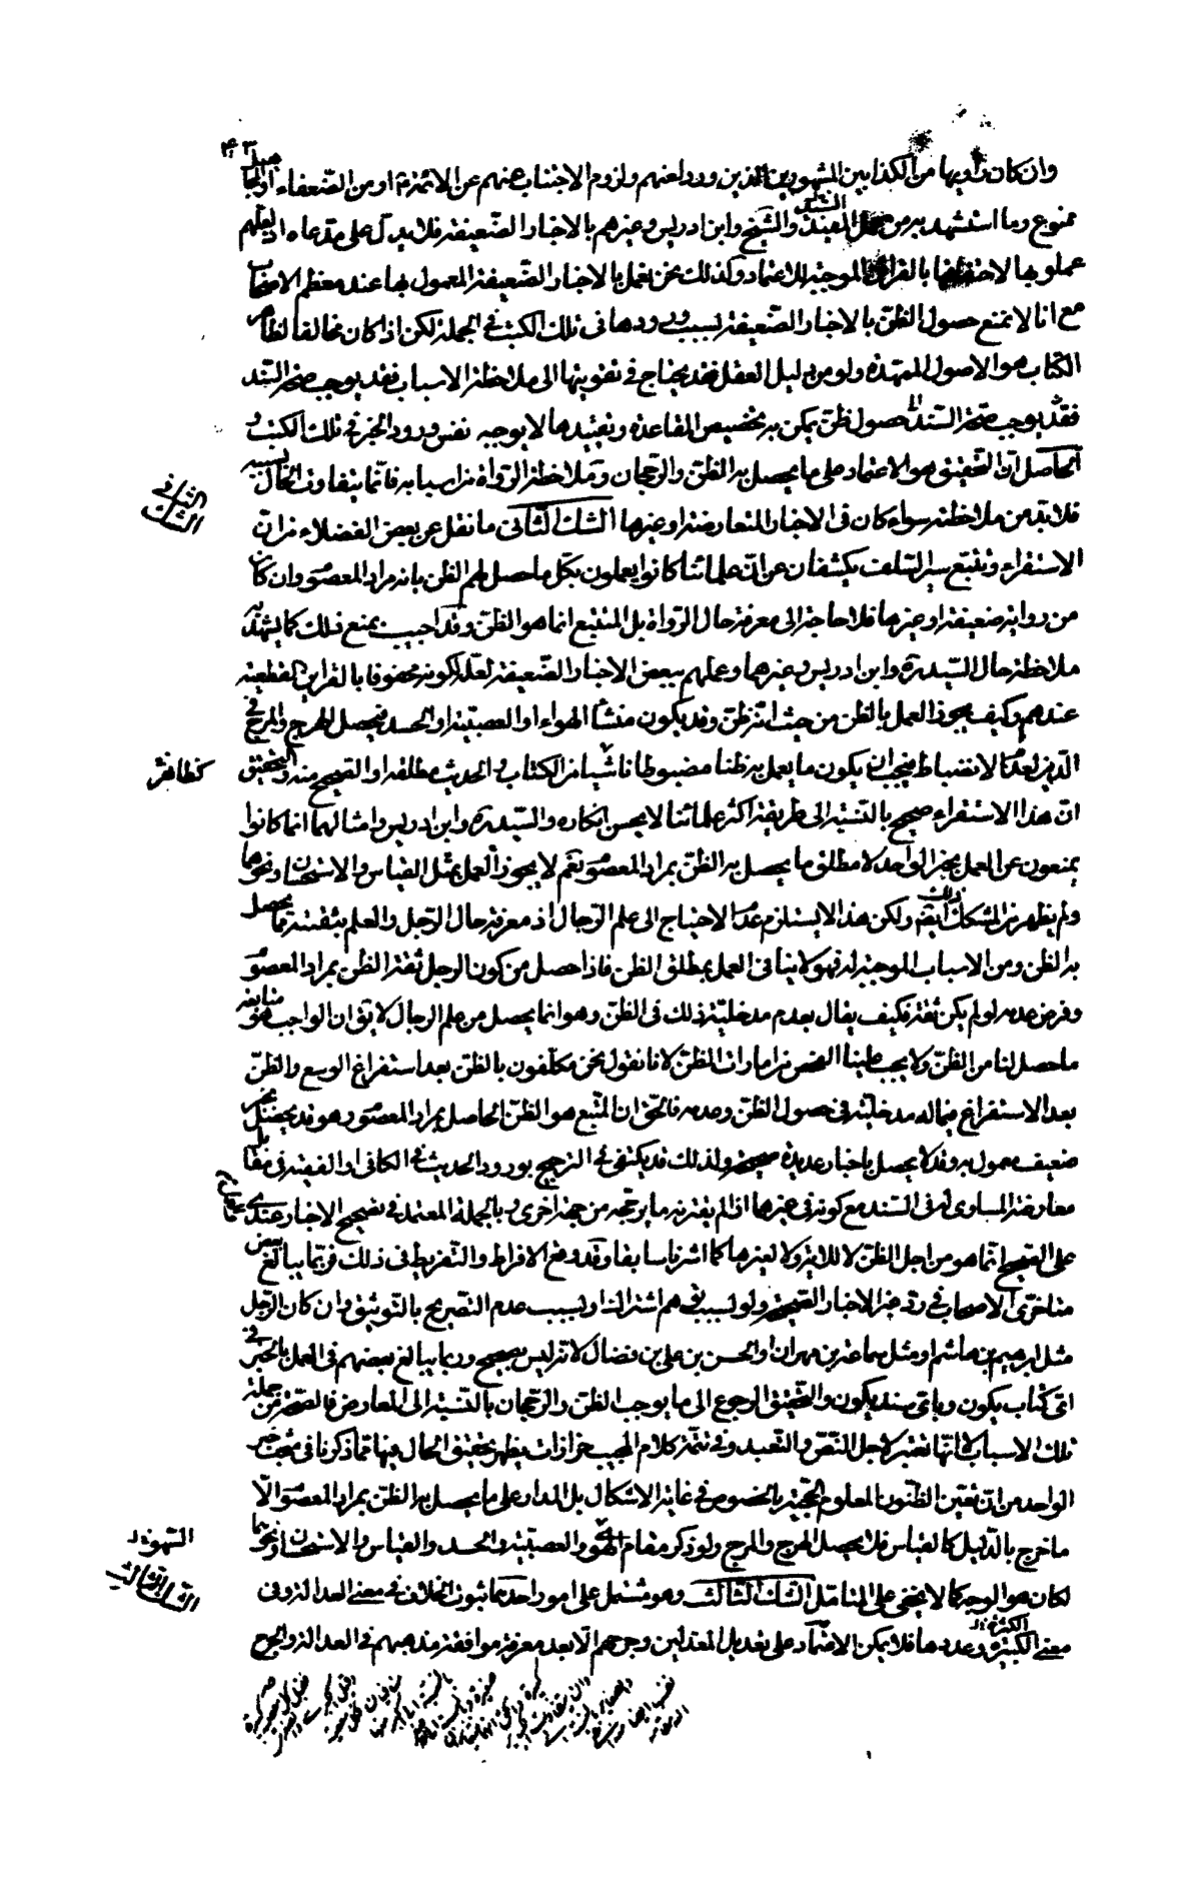 ۴۳
وان كان راويها من الكذابين المشهورين الذين ورد لعنهم ولزوم الاجتناب عنهم عن الائمة ع او من الضعفاء او المجاهيل
ممنوع وما استشهد به من عمل المفيد والشيخ وابن ادريس وغيرهم بالاخبار الضعيفة فلا يدل على مدعاه اذ لعلهم
عملوا بها لاحتفافها بالقراين الموجبة للاعتماد وكذلك نحن نعمل بالاخبار الضعيفة المعمول بها عند معظم الاصحاب
مع انا لا نمنع حصول الظن بالاخبار الضعيفة بسبب ورودها فى تلك الكتب فى الجملة لكن اذا كان مخالفا لظاهر
الكتاب او الاصول الممهدة ولو من دليل العقل فقد يحتاج فى تقويتها الى ملاحظة الاسباب فقد يوجب صحة السند
فقد يوجب صحة السند حصول ظن يمكن به تخصيص القاعدة وتقييدها لا يوجبه نفس ورود الخبر فى تلك الكتب و
الحاصل ان التحقيق هو الاعتماد على ما يحصل به الظن والرجحان وملاحظة الرواة من اسبابه فانما يتفاوت الحال بسببه
فلا بد من ملاحظته سواء كان فى الاخبار المتعارضة او غيرها الشك الثانى ما نقل عن بعض الفضلاء من ان
الاستقراء وتتبع سير السلف يكشفان عن ان علمائنا كانوا يعملون بكل ما حصل لهم الظن بانه مراد المعصوم وان كان
من رواية ضعيفة او غيرها فلا حاجة الى معرفة حال الرواة بل المتبع انما هو الظن وقد اجيب بمنع ذلك كما يشهد به
ملاحظة حال السيد ره وابن ادريس وغيرهما وعملهم ببعض الاخبار الضعيفة لعله لكونه محفوفا بالقراين القطعية
عندهم وكيف يجوز العمل بالظن من حيث انه ظن وقد يكون منشأ الهواء او العصبية او الحسد فيحصل الهرج والمرج فى
الدين لعدم الانضباط فيجب ان يكون ما يعمل به ظنا مضبوطا ناشيا من الكتاب والحديث مطلقا او الصحيح منه والتحقيق
ان هذا الاستقراء صحيح بالنسبة الى طريقة اكثر علمائنا لا يحسن انكاره والسيد ره وابن ادريس وامثالهما انما كانوا
يمنعون عن العمل بخبر الواحد لا مطلق ما يحصل به الظن بمراد المعصوم نعم لا يجوز العمل بمثل القياس والاستحسان ونحوها
ولم يظهر من المشكك ذلك ايضا ولكن هذا لا يستلزم عدم الاحتياج الى علم الرجال اذ معرفة حال الرجل والعلم بثقته مما يحصل
به الظن ومن الاسباب الموجبة له فهو لا ينافى العمل بمطلق الظن فاذا حصل من كون الرجل ثقة الظن بمراد المعصوم
وفرض عدمه لو لم يكن ثقة فكيف يقال بعدم مدخلية ذلك فى الظن وهو انما يحصل من علم الرجال لا يق ان الواجب هو متابعة
ما حصل لنا من الظن ولا يجب علينا الفحص من امارات الظن لانا نقول نحن مكلفون بالظن بعد استفراغ الوسع والظن
بعد الاستفراغ فيما له مدخلية فى حصول الظن وعدمه فالحق ان المتبع هو الظن الحاصل بمراد المعصوم وهو قد يحصل بخبر
ضعيف معمول به وقد لا يحصل باخبار عديدة صحيحة ولذلك قد يكتفى فى الترجيح بورود الحديث فى الكافى او الفقيه فى مقابل
معارضة المساوى له فى السند مع كونه فى غيرهما اذا لم يقترنه ما يرجحه من جهة اخرى وبالجملة المعتمد فى تصحيح الاخبار عندى
على الصحيح انما هو من اجل الظن لا للاية ولا لغيرها كما اشرنا سابقا وقد وقع الافراط والتفريط فى ذلك فربما يبالغ بعض
متاخرى الاصحاب فى رد خبر الاخبار الصحيحة ولو لسبب توهم اشتراك او بسبب عدم التصريح بالتوثيق وان كان الرجل
مثل ابرهيم بن هاشم او مثل سماعة بن مهران او الحسن بن على بن فضال لانه ليس بصحيح وربما يبالغ بعضهم فى العمل بالخبر فى
اى كتاب يكون وباى سند يكون والتحقيق الرجوع الى ما يوجب الظن والرجحان بالنسبة الى المعارض فالصحة من جملة
تلك الاسباب لا انها تعتبر لاجل النص والتعبد وفى تتمة كلام المجيب حزازات يظهر تحقيق الحال فيها مما ذكرنا فى مبحث خبر
الواحد من ان تعيين الظنون المعلوم الحجية بالخصوص فى غاية الاشكال بل المدار على ما يحصل به الظن بمراد المعصوم الا
ما خرج بالدليل كالقياس فلا يحصل الهرج والمرج ولو ذكر مقام الهوى والعصبية والحسد والقياس والاستحسان ونحوهما
لكان هو الوجه كما لا يخفى على المتامل الشك الثالث وهو مشتمل على امور احدها ثبوت الخلاف فى معنى العدالة وفى
معنى الكبيرة وعددها فلا يمكن الاعتماد على تعديل المعدلين وجرحهم الا بعد معرفة موافقة مذهبهم فى العدالة والجرح
الشك الثانى
كظاهر
الشهود
الشك الثالث